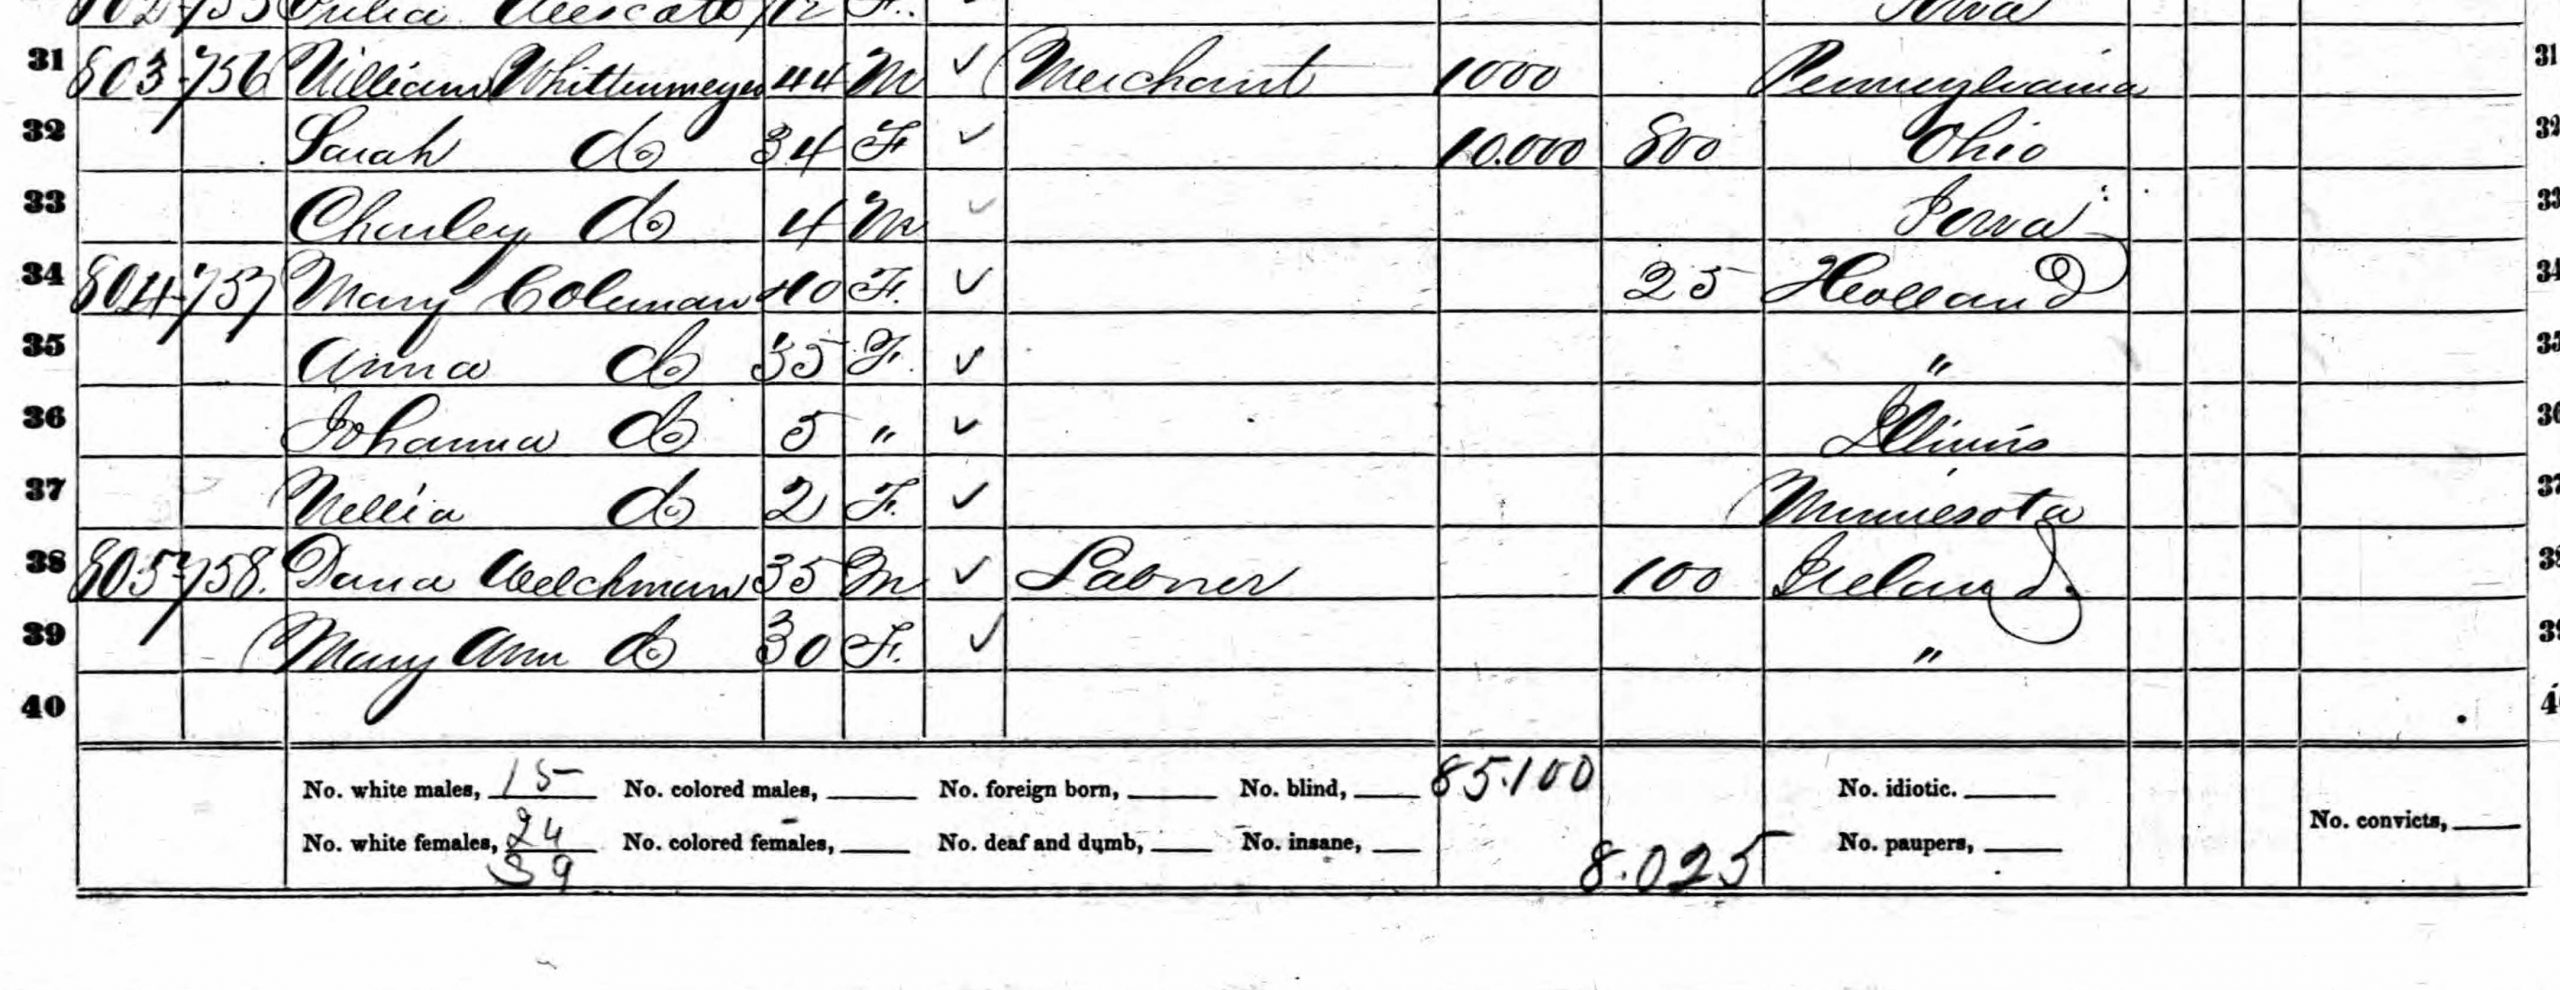 Iowa
31 803 756 William Whittenmeyer 44 M ✓ Merchant 1000 Pennsylvania 31
32 Sarah do 34 F ✓ 10.000 800 Ohio 32
33 Charley do 4 M ✓ Iowa 33
34 804 757 Mary Coleman 40 F. ✓ 25 Holland 34
35 Anna do 35 F. ✓ " 35
36 Johanna do 5 " ✓ Illinois 36
37 Nellia do 2 F. ✓ Minnesota 37
38 805 758. Dana Welchman 35 M ✓ Laborer 100 Ireland 38
39 Mary Ann do 30 F. ✓ " 39
40
No. white males, 15 No. colored males, No. foreign born, No. blind, 85.100 No. idiotic.
No. white females, 24 No. colored females, No. deaf and dumb, No. insane, 8.025 No. paupers, No. convicts,
39